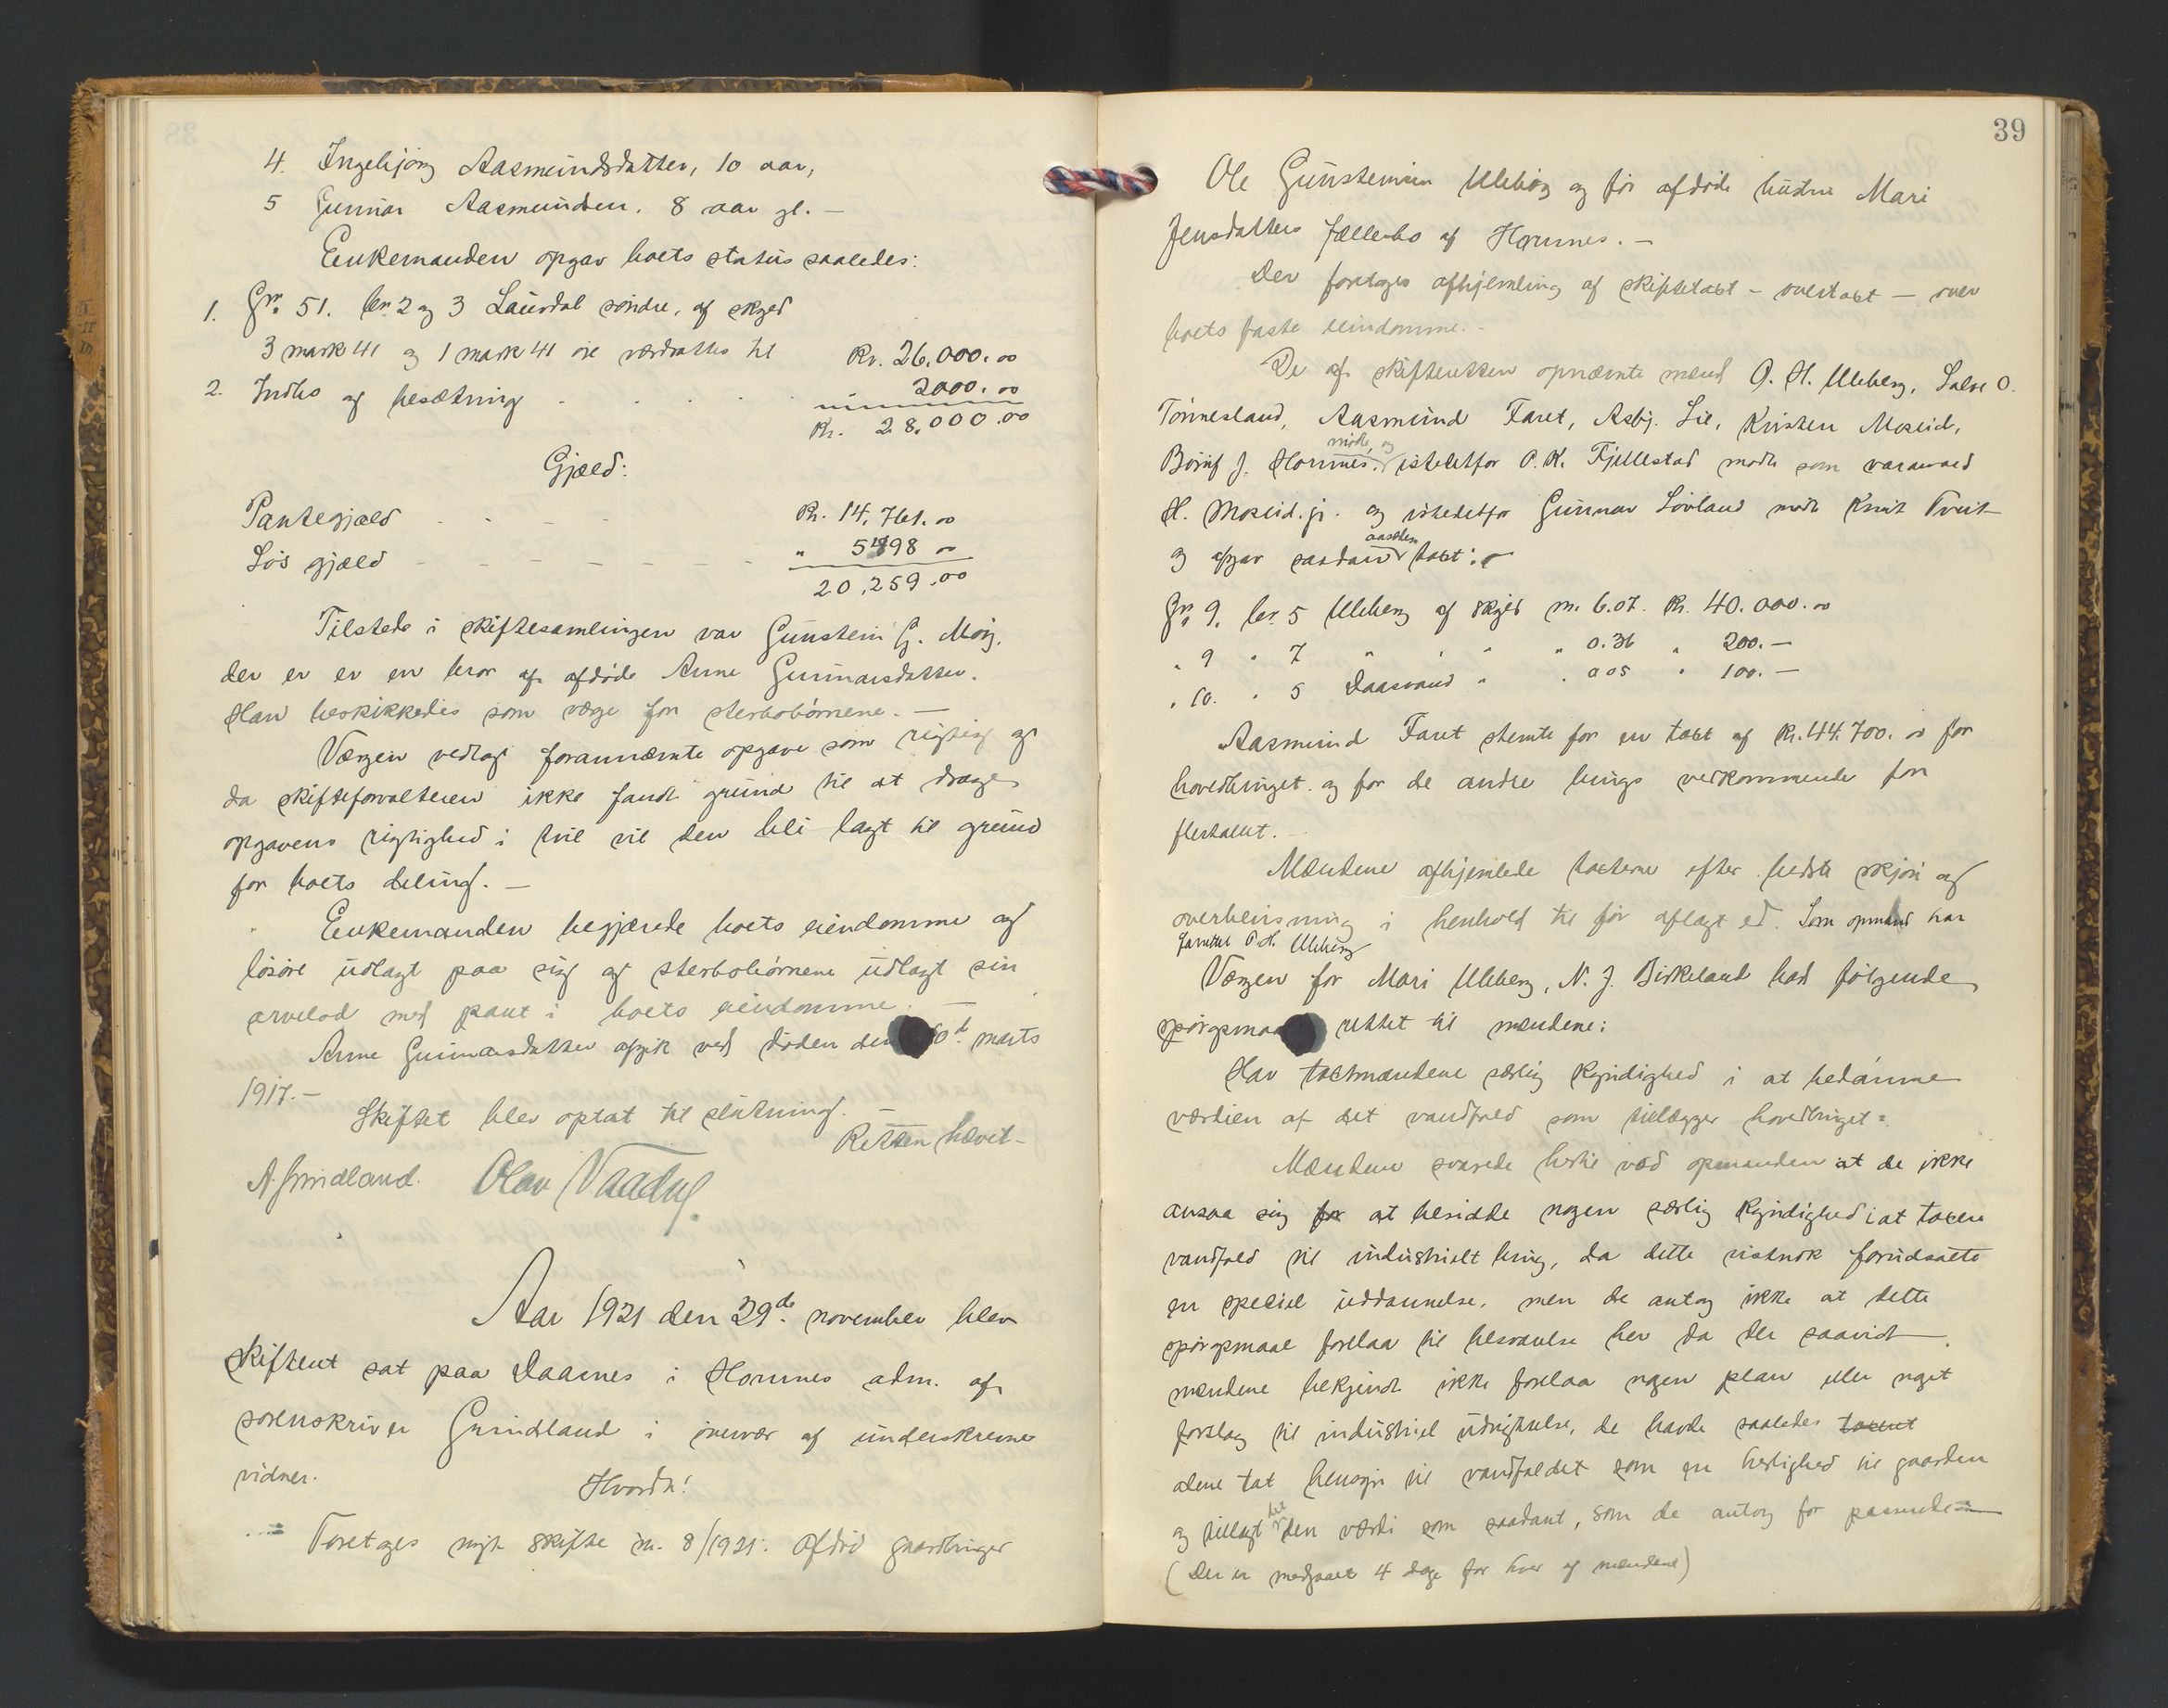 4. Ingebjørg Aasmundsdatter, 10 aar,
5 Gunnar Aasmundsen. 8 aar gl. —
Enkemanden opgav boets status saaledes:
1. Gr. 51. br. 2 og 3 Lauvdal søndre, af skyld
3 mark 41 og 1 mark 41 øre værdsattes til Kr. 26.000.00
2. Indbo og besætning - - - - " 2000.00
Kr. 28.000.00
Gjæld:
Pantegjæld - - - - Kr. 14.761.00
Løs gjæld - - - - - - - " 5498 00
20.259.00
Tilstede i skiftesamlingen var Gunstein G. Moi,
der er er en bror af afdøde Anne Gunnarsdatter.
Han beskikkedes som værge for sterbobørnene. —
Værgen vedtog forannævnte opgave som rigtig og
da skifteforvalteren ikke fandt grund til at drage
opgavens rigtighed i tvil vil den bli lagt til grund
for boets deling. —
Enkemanden begjærede boets eiendomme og
løsøre udlagt paa sig og sterbobørnene udlagt sin
arvelod med pant i boets eiendomme. —
Anne Gunnarsdatter afgik ved døden den 0d. marts
1917. —
Skiftet blev optat til slutning. —
Retten hævet -
A. Grindland. Olav Vaadne
Aar 1921 den 29de november blev
skifteret sat paa Daasnes i Hornnes adm. af
sorenskriver Grindland i overvær af underskrevne
vidner.
Hvorda!
Foretoges nyt skifte nr. 8/1921. Afdød gaardbruger
39
Ole Gunsteinsen Uleberg og før afdøde hustru Mari
Jensdatters fællesbo af Hornnes. —
Der foretoges afhjemling af skiftetaxt - overtaxt — over
boets faste eiendomme. -
De af skifteretten opnævnte mænd O. H. Uleberg, Salve O.
Tønnesland, Aasmund Faret, Asbj. Lie, Kristen Moseid,
Børuf J. Hornnes. mødte og istedetfor O. K. Fjellestad mødte som varamand
H. Moseid. jr. og istedetfor Gunnar Løvland mødte Knut Tveit
og afgav saadan taxt:
Gr. 9. br. 5 Uleberg af skyld m. 6.07. Kr. 40.000.00
" 9 " 7 " " " " 0.36 " 200. —
" 10. " 5 Daasvand " " 0 05 " 100. —
Aasmund Faret stemte for en taxt af Kr. 44.700.00 for
hovedbruget og for de andre brugs vedkommende for
flertallet. -
Mændene afhjemlede taxterne efter bedste skjøn og
overbevisning i henhold til før aflagt ed. Som opmand har
O. H. Uleberg
Værgen for Mari Uleberg, N. J. Birkeland had følgende
spørgsmaa rettet til mændene:
Har taxtmændene særlig kyndighed i at bedømme
værdien af det vandfald som tillægger hovedbruget?
Mændene svarede hertil ved opmanden at de ikke
ansaa sig for at besidde nogen særlig kyndighed i at taxere
vandfald til industrielt brug, da dette vistnok forudsatte
en speciel uddannelse, men de antog ikke at dette
spørgsmaal forelaa til besvarelse her da der saavidt
mændene bekjendt ikke forelaa nogen plan eller noget
forslag til industriel udnyttelse, de havde saaledes taxeret
alene tat hensyn til vandfaldet som en herlighed til gaarden
og tillagt det den værdi som saadant, som de antog for passende
(Der er medgaaet 4 dage for hver af mændene)